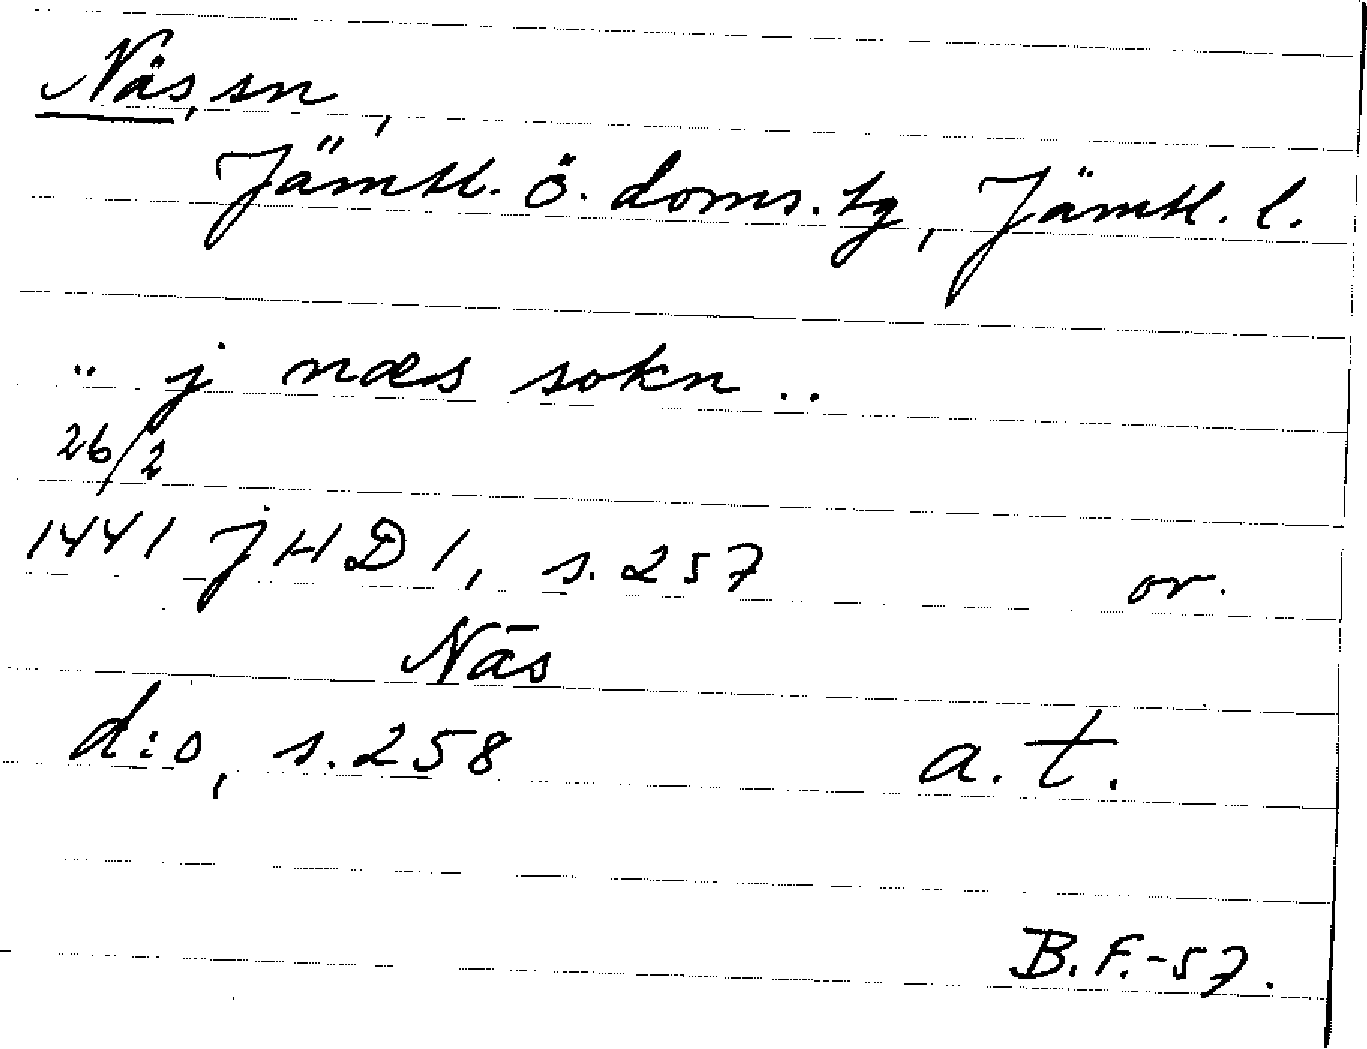 Näs, sn,
Jämtl. ö. doms. tg, Jämtl. l.
.. j næs sokn ..
26/2
1441 JHD 1, s. 257 or.
Näs
d:o, s. 258 a. t.
B. F. -57.